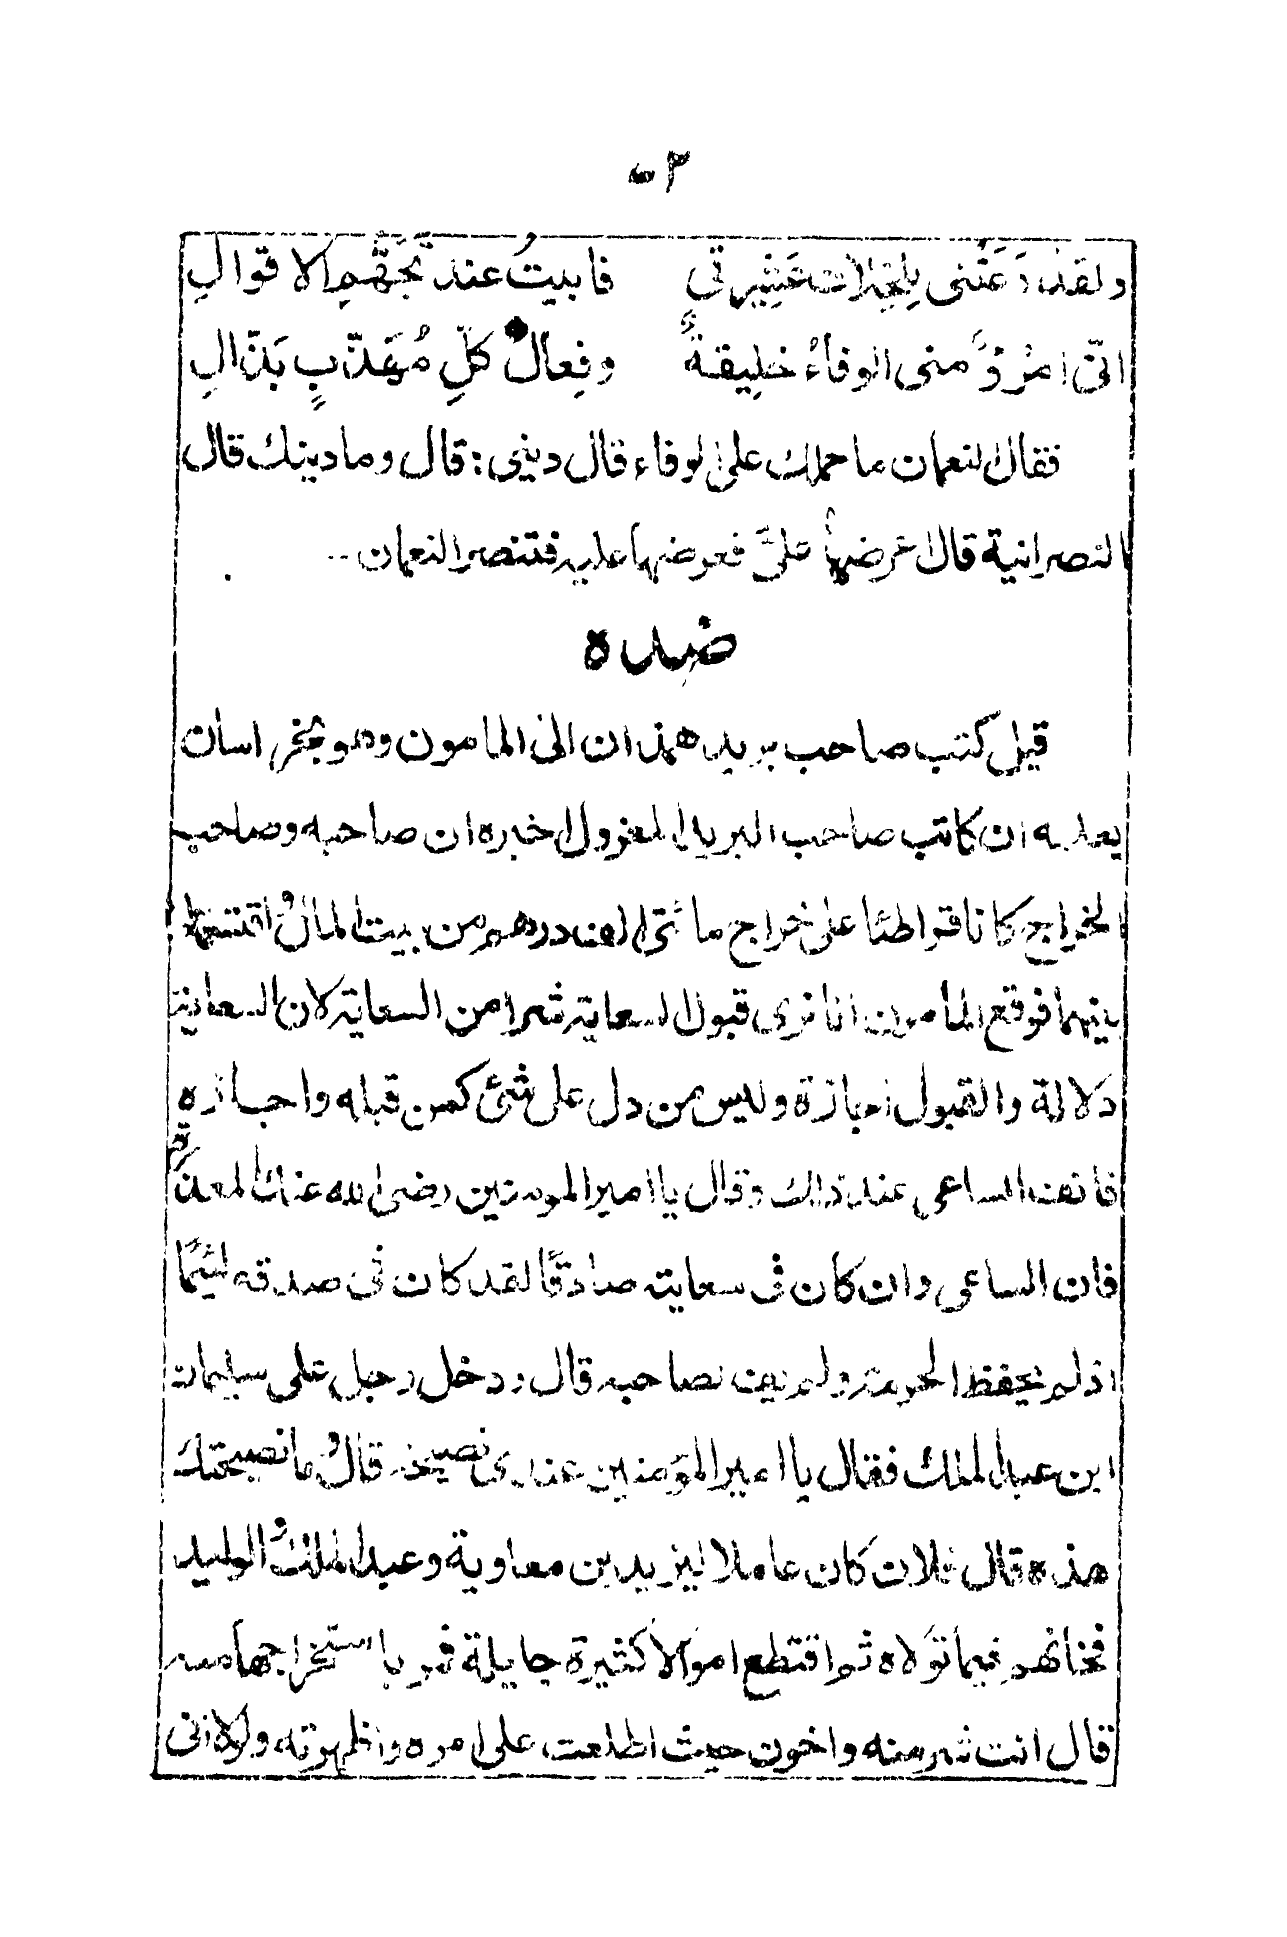 ولقد دَعَتْنى لِلخِلاف عَشِيرتي فابيتُ عند تَجَهُّمِ الاقوالِ
انّى امْرُؤٌ منى الوفاءُ خلِيقةٌ وفِعالُ كلِّ مُهَذّبٍ بَذّالِ
فقال النعمان ما حملك على الوفاء قال ديني : قال وما دينك قال
النصرانية قال اعرضها علىَّ فعرضها عليه فتنصر النعمان ..
ضده
قيل كتب صاحب بريد همذان الى المامون وهو بخراسان
يعلمه ان كاتب صاحب البريد المعزول اخبره ان صاحبه وصاحب
الخراج كانا قواطئا على خراج مائتى الف درهم من بيت المال اقتسماها
بينهما فوقع المأمون انا نرى قبول السعاية شرا من السعاية لان السعاية
دلالة والقبول اجازة وليس من دل على شئ كمن قبله واجازه
فانف الساعى عند ذلك وقال يا امير المومنين رضى الله عنك المعذرة
فان الساعى وان كان فى سعايته صادقًا لقد كان فى صدقه لئيمًا
اذ لم يحفظ الحرمة ولم يف لصاحبه قال ودخل رجل على سليمان
ابن عبد الملك فقال يا امير المؤمنين عندى نصيحة قال وما نصيحتك
هذه قال فلان كان عاملا ليزيد بن معاوية وعبد الملك والوليد
فخانهم فيما تولاه ثم اقتطع اموالا كثيرة جليلة فمر باستخراجها منه
قال انت شر منه واخون حيث اطلعت على امره واظهرته ولولا انى